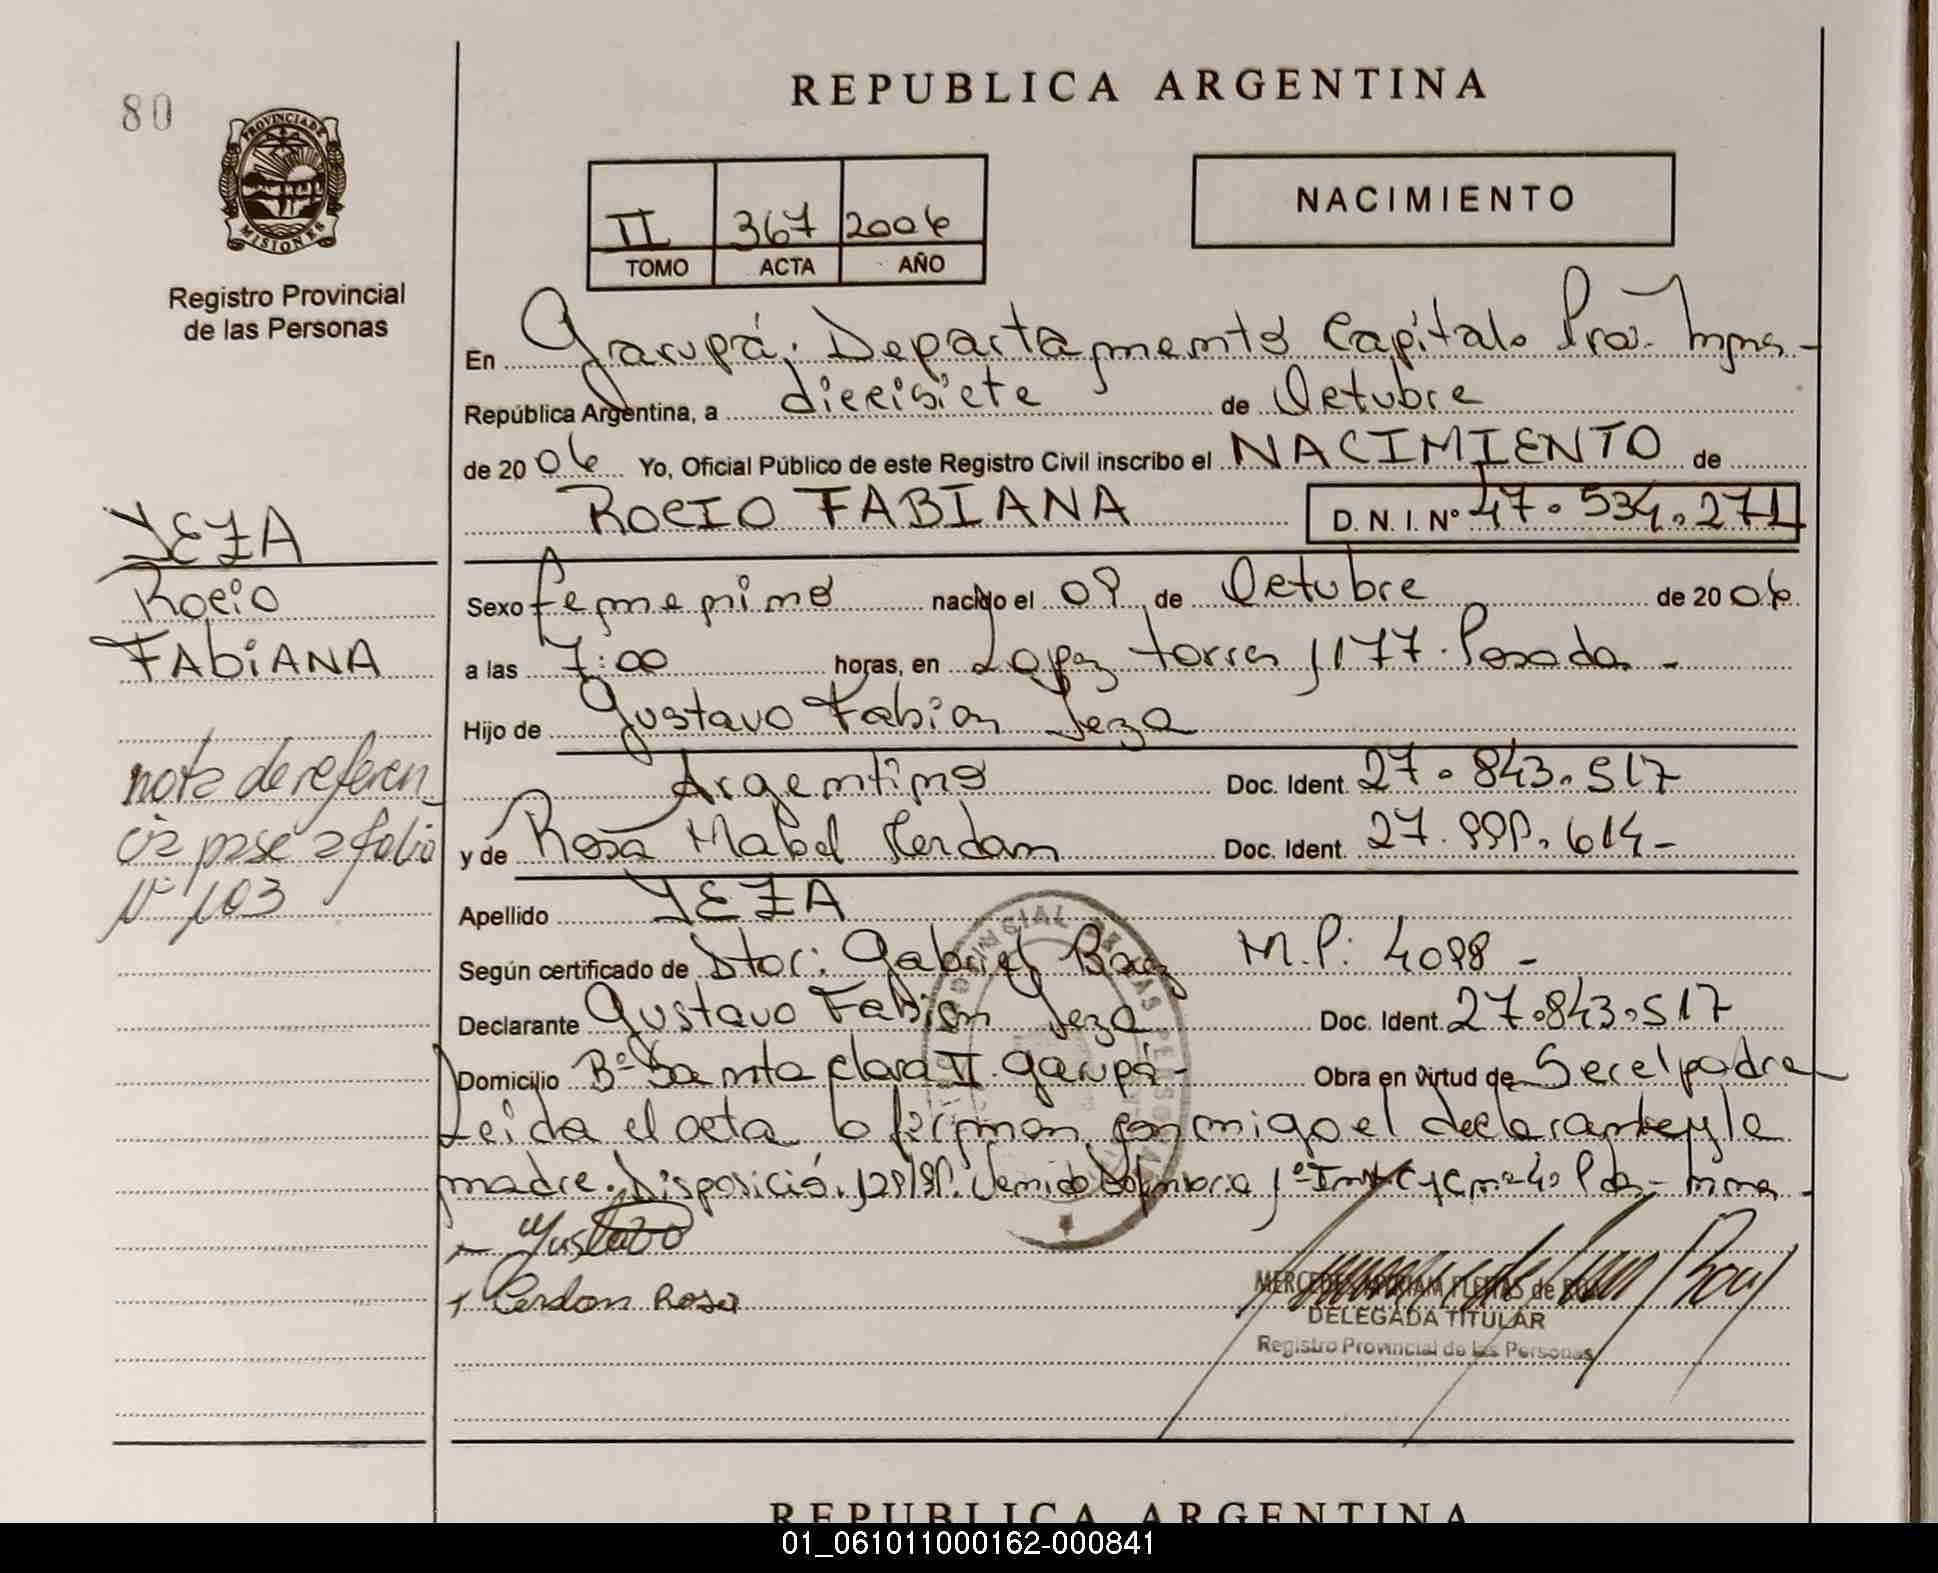 80
REPUBLICA ARGENTINA
PROVINCIA DE
MISIONES
Registro Provincial
de las Personas
II 367 2006
TOMO ACTA AÑO
NACIMIENTO
En Garupá, Departamento Capital. Prov. Mnes-
República Argentina, a diecisiete de Octubre
de 2006 Yo, Oficial Público de este Registro Civil inscribo el NACIMIENTO de
ROCIO FABIANA D. N. I. Nº 47.534.271
Sexo femenino nacido el 09 de Octubre de 2006
a las 7:00 horas, en Lopez torres 1177. Posadas -
Hijo de Gustavo Fabian Jeza
Argentino Doc. Ident. 27.843.517
y de Rosa Mabel Doc. Ident. 27.999.614-
Apellido JEZA
Según certificado de Dtor: Gabriel Baez M.P: 4098 -
Declarante Gustavo Fabian Jeza Doc. Ident. 27.843.517
Domicilio Bº Santa clara II. Garupá- Obra en virtud de Ser el padre
Leida el acta lo firman conmigo el declarante y la
madre. Disposició.
Gustavo
Rosa
MERCEDES MYRIAM FLEITAS de
DELEGADA TITULAR
Registro Provincial de las Personas
JEZA
Rocio
FABIANA
nota de referen
cia pase a folio
Nº 103
REPUBLICA ARGENTINA
01_061011000162-000841